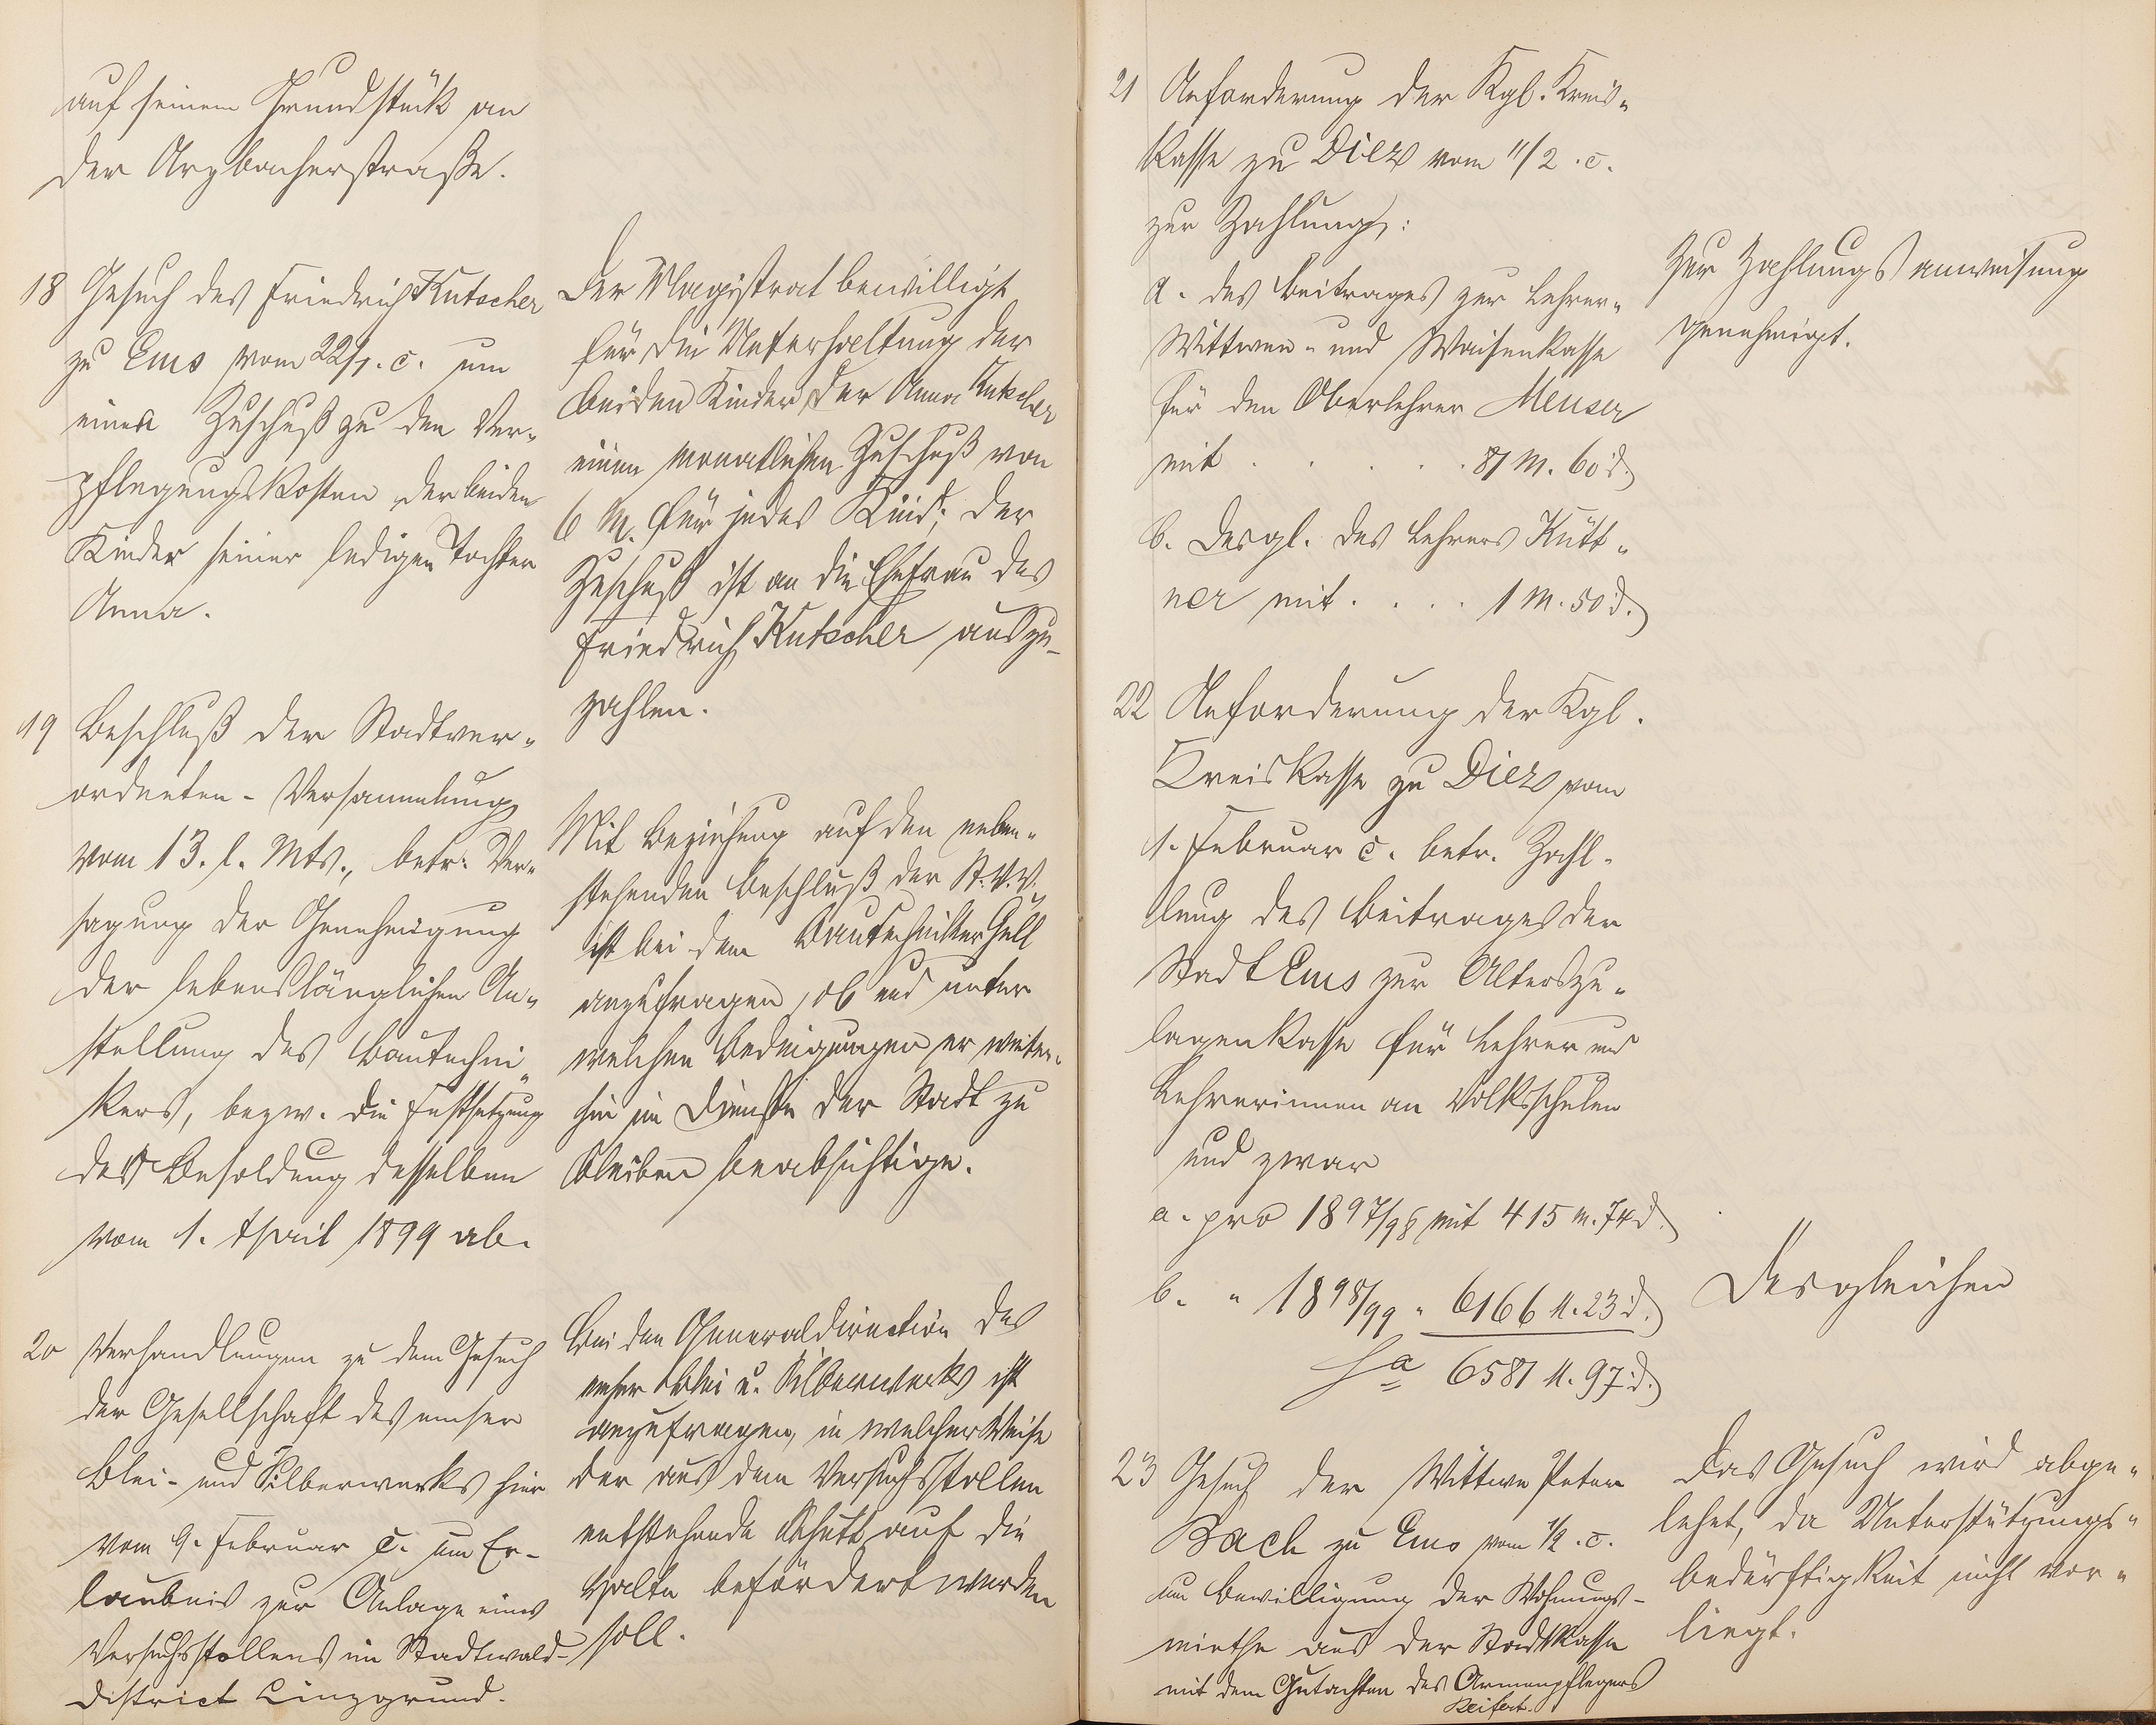 auf seinem Grundstück an
der Arzbacherstraße.
18 Gesuch des Friedrich Kutscher
zu Ems vom 22/1. c. um
einen Zuschuß zu den Ver-
pflegungskosten der beiden
Kinder seiner ledigen Tochter
Anna.
Der Magistrat bewilligt
für die Unterhaltung der
beiden Kinder der Anna Kutscher
einen monatlichen Zuschuß von
6 M. für jedes Kind; der
Zuschuß ist an die Ehefrau des
Friedrich Kutscher auszu-
zahlen.
19 Beschluß der Stadtver-
ordneten-Versammlung
vom 13. l. Mts., betr. Ver-
sagung der Genehmigung
der lebenslänglichen An-
stellung des Bautechni-
kers, bezw. die Festsetzung
der Besoldung desselben
vom 1. April 1899 ab.
Mit Beziehung auf den neben-
stehenden Beschluß der St. V. V.
ist bei dem Bautechniker Gull
anzufragen, ob und unter
welchen Bedingungen er weiter-
hin im Dienste der Stadt zu
bleiben beabsichtige.
20 Verhandlungen zu dem Gesuch
der Gesellschaft des emser
Blei- und Silberwerks hier
vom 9. Februar c. um Er-
laubnis zur Anlage eines
Versuchsstollens im Stadtwald-
district Linzgrund.
Bei der Generaldirection des
emser Blei u. Silberwerks ist
anzufragen, in welcher Weise
der aus dem Versuchsstollen
entstehende Schutt auf die
Halde befördert werden
soll.
21 Anforderung der Kgl. Kreis-
kasse zu Diez vom 11/2. c.
zur Zahlung:
a. des Beitrages zur Lehrer-
Wittwen- und Waisenkasse
für den Oberlehrer Meuser
mit . . . . . 81 M. 60 d.
b. desgl. des Lehrers Kütt-
ner mit . . . . 1 M. 50 d.
Zur Zahlungsanweisung
genehmigt.
22 Anforderung der Kgl.
Kreiskasse zu Diez vom
1. Februar c. betr. Zahl-
lung des Beitrages der
Stadt Ems zur Alterszu-
lagenkasse für Lehrer und
Lehrerinnen an Volksschulen
und zwar
a. pro 1897/98 mit 415 M. 74 d.
b. " 1898/99 " 6166 M. 23 d.
Sa 6581 M. 97 d.
Desgleichen
23 Gesuch der Wittwe Peter
Bach zu Ems vom 1/2. c.
um Bewilligung der Wohnungs-
miethe aus der Stadtkasse
mit dem Gutachten des Armenpflegers
Seifert.
Das Gesuch wird abge-
lehnt, da Unterstützungs-
bedürftigkeit nicht vor-
liegt.